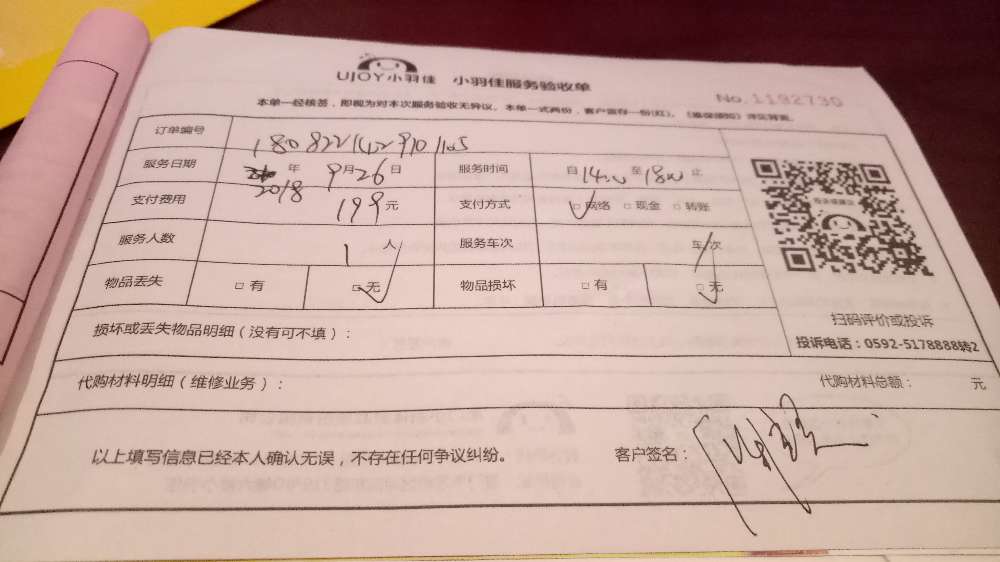 UJOY小羽佳 小羽佳服务验收单
No.1192730
本单一经核签，即视为对本次服务验收无异议。本单一式两份，客户留存一份(红)。
订单编号
服务日期 2018 年 9月26日 服务时间 自14:00至18:00止
支付费用 199元 支付方式 □网络 □现金 □转账
服务人数 1人 服务车次 车次
物品丢失 □有 □无 物品损坏 □有 □无
扫码评价或投诉
投诉电话：0592-5178888转2
损坏或丢失物品明细（没有可不填）：
代购材料明细（维修业务）： 代购材料总额： 元
以上填写信息已经本人确认无误，不存在任何争议纠纷。 客户签名：